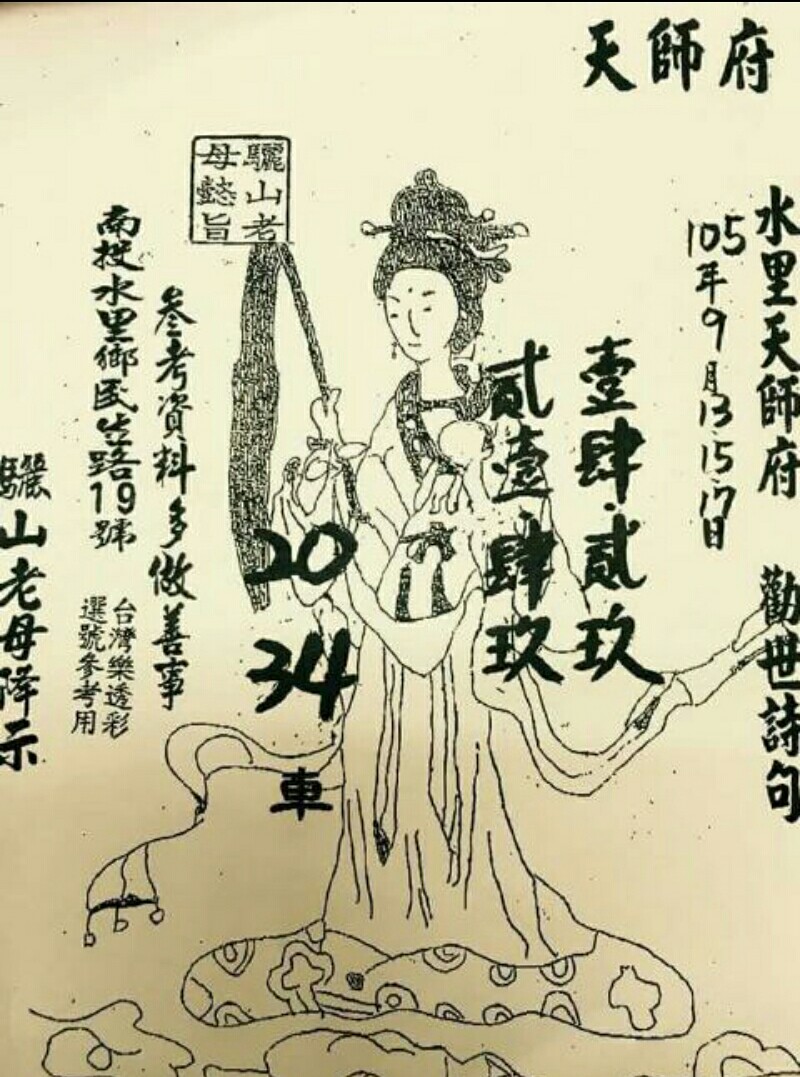 天師府
水里天師府 勸世詩句
105年9月13.15.17日
壹肆.貳玖
貳壹.肆玖
20
34
車
驪山老母懿旨
參考資料多做善事
南投水里鄉民生路19號
台灣樂透彩
選號參考用
驪山老母降示